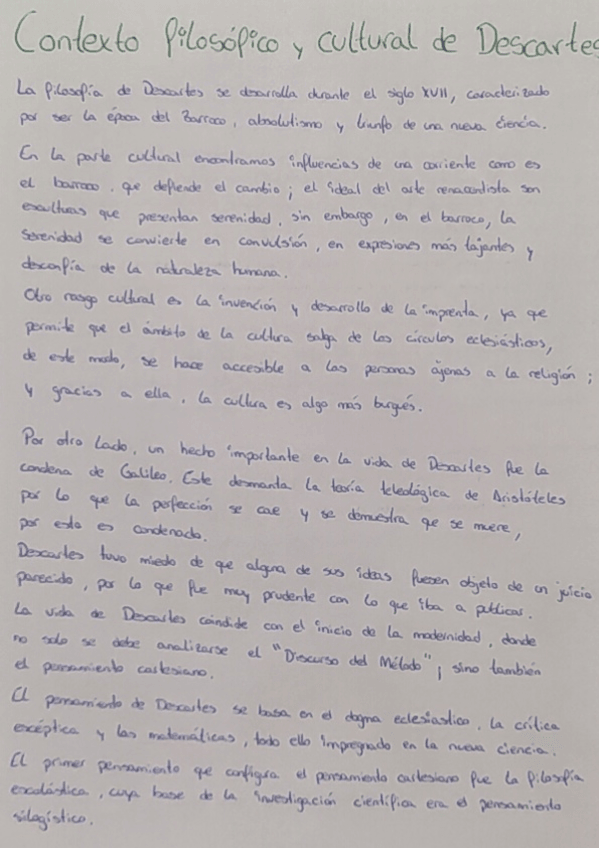 Contexto filosófico y cultural de Descartes
La filosofía de Descartes se desarrolla durante el siglo XVII, caracterizado
por ser la época del Barroco, absolutismo y triunfo de una nueva ciencia.
En la parte cultural encontramos influencias de una corriente como es
el barroco, que defiende el cambio; el ideal del arte renacentista son
esculturas que presentan serenidad, sin embargo, en el barroco, la
serenidad se convierte en convulsión, en expresiones más tajantes y
desconfía de la naturaleza humana.
Otro rasgo cultural es la invención y desarrollo de la imprenta, ya que
permite que el ámbito de la cultura salga de los círculos eclesiásticos,
de este modo, se hace accesible a las personas ajenas a la religión;
y gracias a ella, la cultura es algo más burgués.
Por otro lado, un hecho importante en la vida de Descartes fue la
condena de Galileo. Este desmonta la teoría teleológica de Aristóteles
por lo que la perfección se cae y se demuestra que se mueve,
por esto es condenado.
Descartes tuvo miedo de que alguna de sus ideas fuesen objeto de un juicio
parecido, por lo que fue muy prudente con lo que iba a publicar.
La vida de Descartes coindide con el inicio de la modernidad, donde
no solo se debe analizarse el "Discurso del Método"; sino también
el pensamiento cartesiano.
El pensamiento de Descartes se basa en el dogma eclesiastico, la crítica
escéptica y las matemáticas, todo ello impregnado en la nueva ciencia.
El primer pensamiento que configura el pensamiento cartesiano fue la filosofía
escolástica, cuya base de la investigación científica era el pensamiento
silogístico.